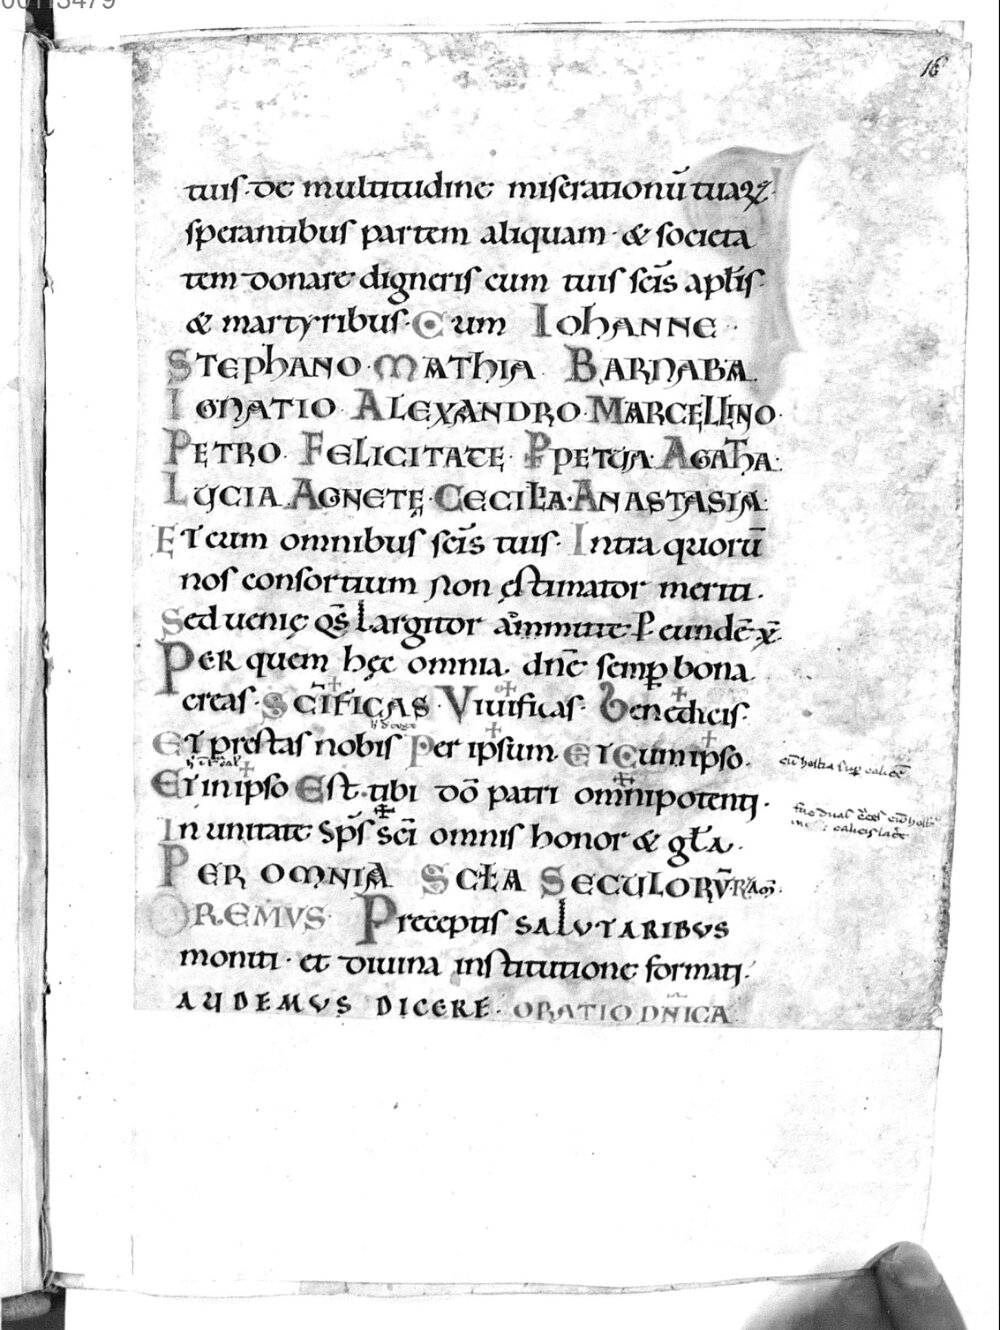 00113479
16
tuis· de multitudine miserationū tuaꝝ
sperantibus partem aliquam· & societa
tem donare digneris cum tuis sc̄is apl̄is·
& martyribus· Cum IOHANNE·
STEPHANO· MATHIA BARNABA
IGNATIO ALEXANDRO· MARCELLINO·
PETRO· FELICITATE· ꝑPETUA· AGATHA·
LUCIA AGNETĘ· CECILIA· ANASTASIA·
ET cum omnibus sc̄is tuis· Intra quorū
nos consortium non ęstimator meriti·
Sed uenię qs̄ largitor ammitte· P eundē xp̄
PER quem hęc omnia· dn̄e semꝑ bona
creas· SC̄IFICAS· Viuificas· Benedicis·
ET prestas nobis Per ipsum· ET Cum ipso·
ET in ipso Est· tibi dō patri omnipotenti·
In unitate sp̄s sc̄i omnis honor & gl̄a·
PER OMNIA SCL̄A SECULORV̄·
OREMVS· Preceptis SALVTARIBVS
moniti· et diuina institutione formati·
AUDEMVS DICERE· ORATIO DN̄ICA